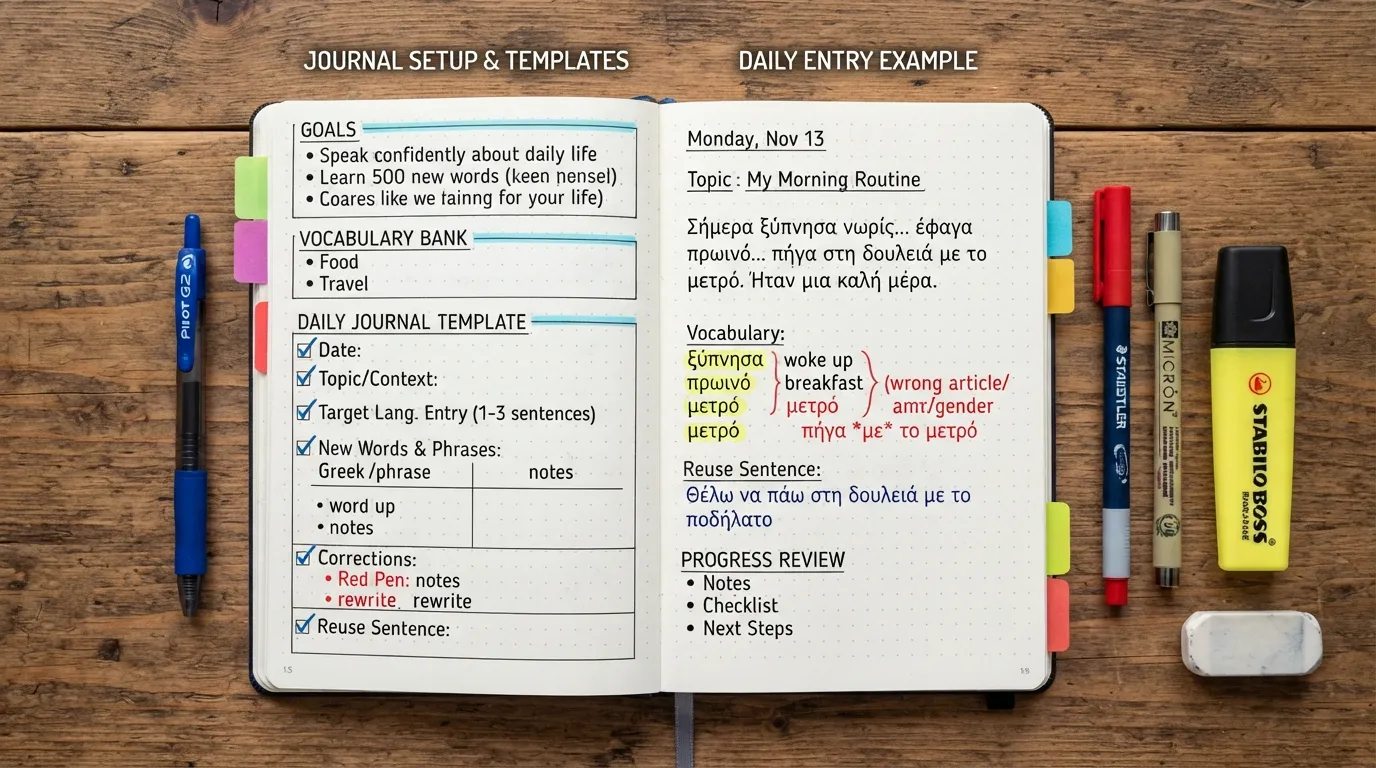 JOURNAL SETUP & TEMPLATES
GOALS
• Speak confidently about daily life
• Learn 500 new words (keen nensel)
• Coares like we tainng for your life)
VOCABULARY BANK
• Food
• Travel
DAILY JOURNAL TEMPLATE
Date:
Topic/Context:
Target Lang. Entry (1-3 sentences)
New Words & Phrases:
Greek/phrase notes
• word up
• notes
Corrections:
• Red Pen: notes
• rewrite rewrite
Reuse Sentence:
15
DAILY ENTRY EXAMPLE
Monday, Nov 13
Topic: My Morning Routine
Σήμερα ξύπνησα νωρίς... έφαγα
πρωινό... πήγα στη δουλειά με το
μετρό. Ήταν μια καλή μέρα.
Vocabulary:
ξύπνησα woke up
πρωινό breakfast (wrong article/
μετρό μετρό amτ/gender
μετρό πήγα *με* το μετρό
Reuse Sentence:
Θέλω να πάω στη δουλειά με το
ποδήλατο
PROGRESS REVIEW
• Notes
• Checklist
• Next Steps
PILOT G2
STAEDTLER
MICRON
STABILO BOSS